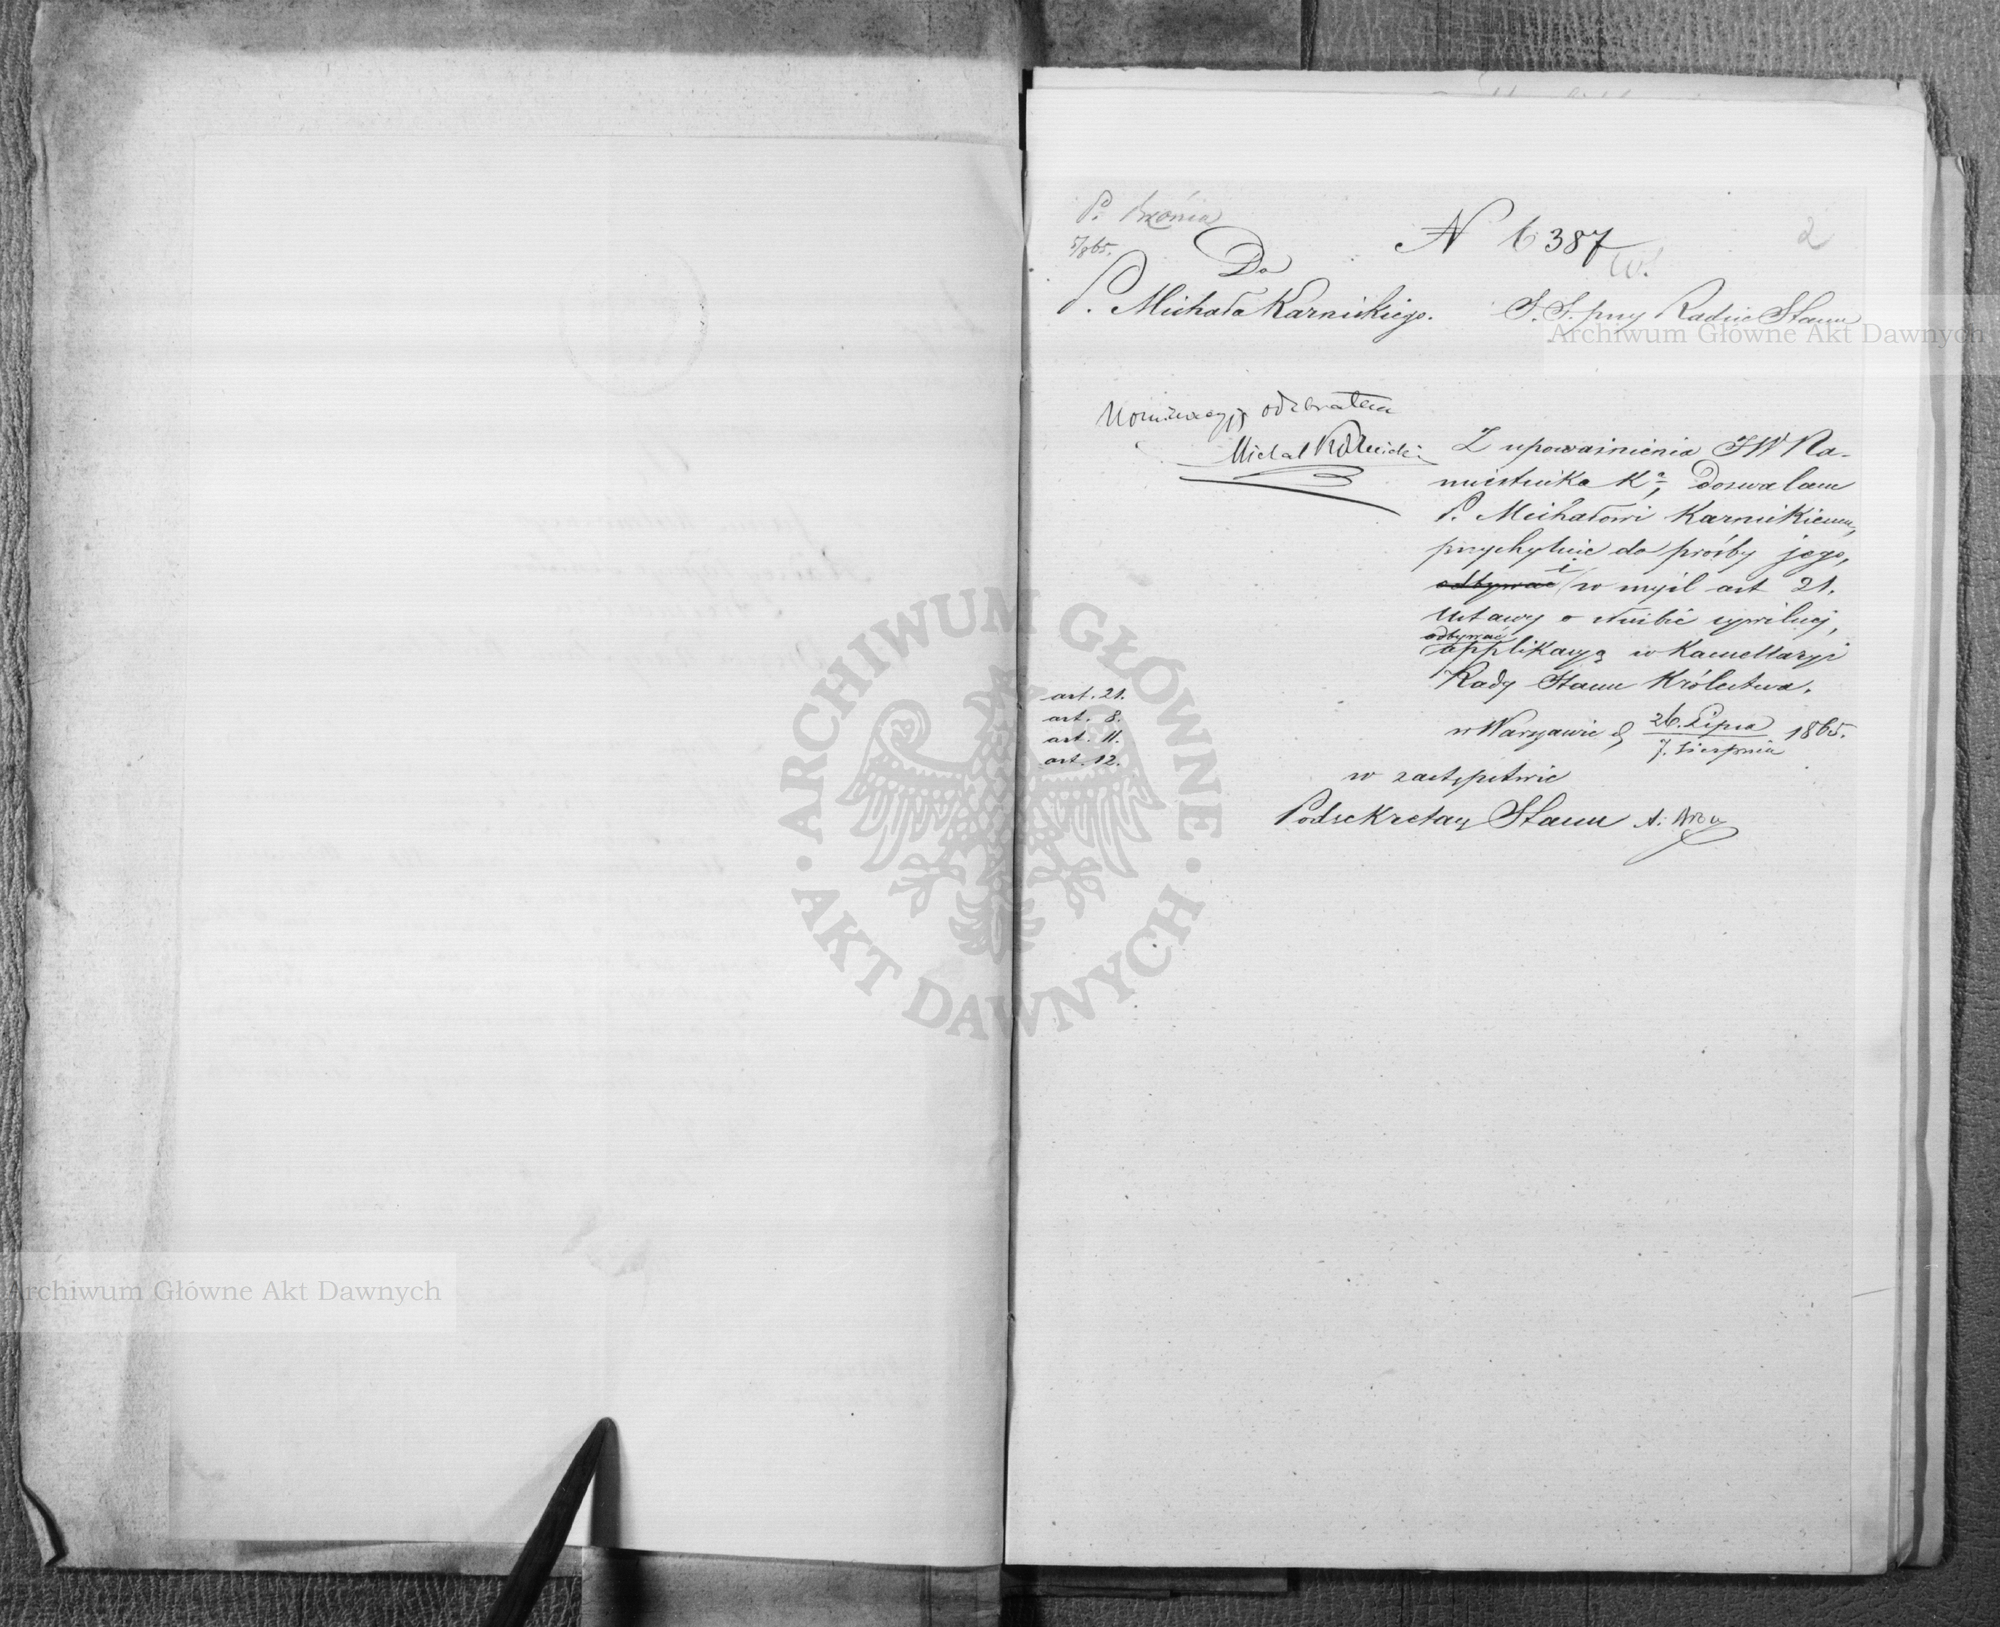 P.
5/8 65.
N 6387
2
Do
P. Michała Karnickiego.
S. S. przy Radzie Stanu
Archiwum Główne Akt Dawnych
Nominacyję odebrałem
Michał Karnicki
Z upoważnienia JW Na-
miestnika Kr, Dozwalam
P. Michałowi Karnickiemu,
przychylnie do prośby jego,
odbywać i w myśl art 21.
Ustawy o służbie cywilnej,
odbywać
applikacyą w Kancellaryi
Rady Stanu Królestwa.
art. 21.
art. 8.
art. 11.
art. 12.
w Warszawie d 26. Lipca / 7. Sierpnia 1865.
w zastępstwie
Podsekretarz Stanu
ARCHIWUM GŁÓWNE
AKT DAWNYCH
Archiwum Główne Akt Dawnych